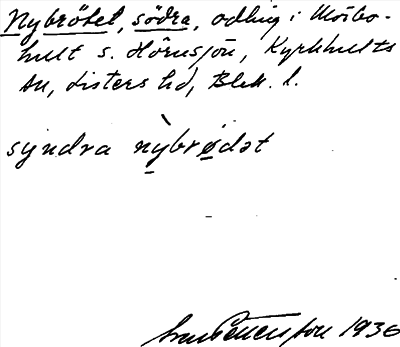 Nybrötet, södra, odling i Moibo-
hult s. Hörnsjön, Kyrkhults
sn, Listers hd, Blek. l.
syndra nybrødət
1936